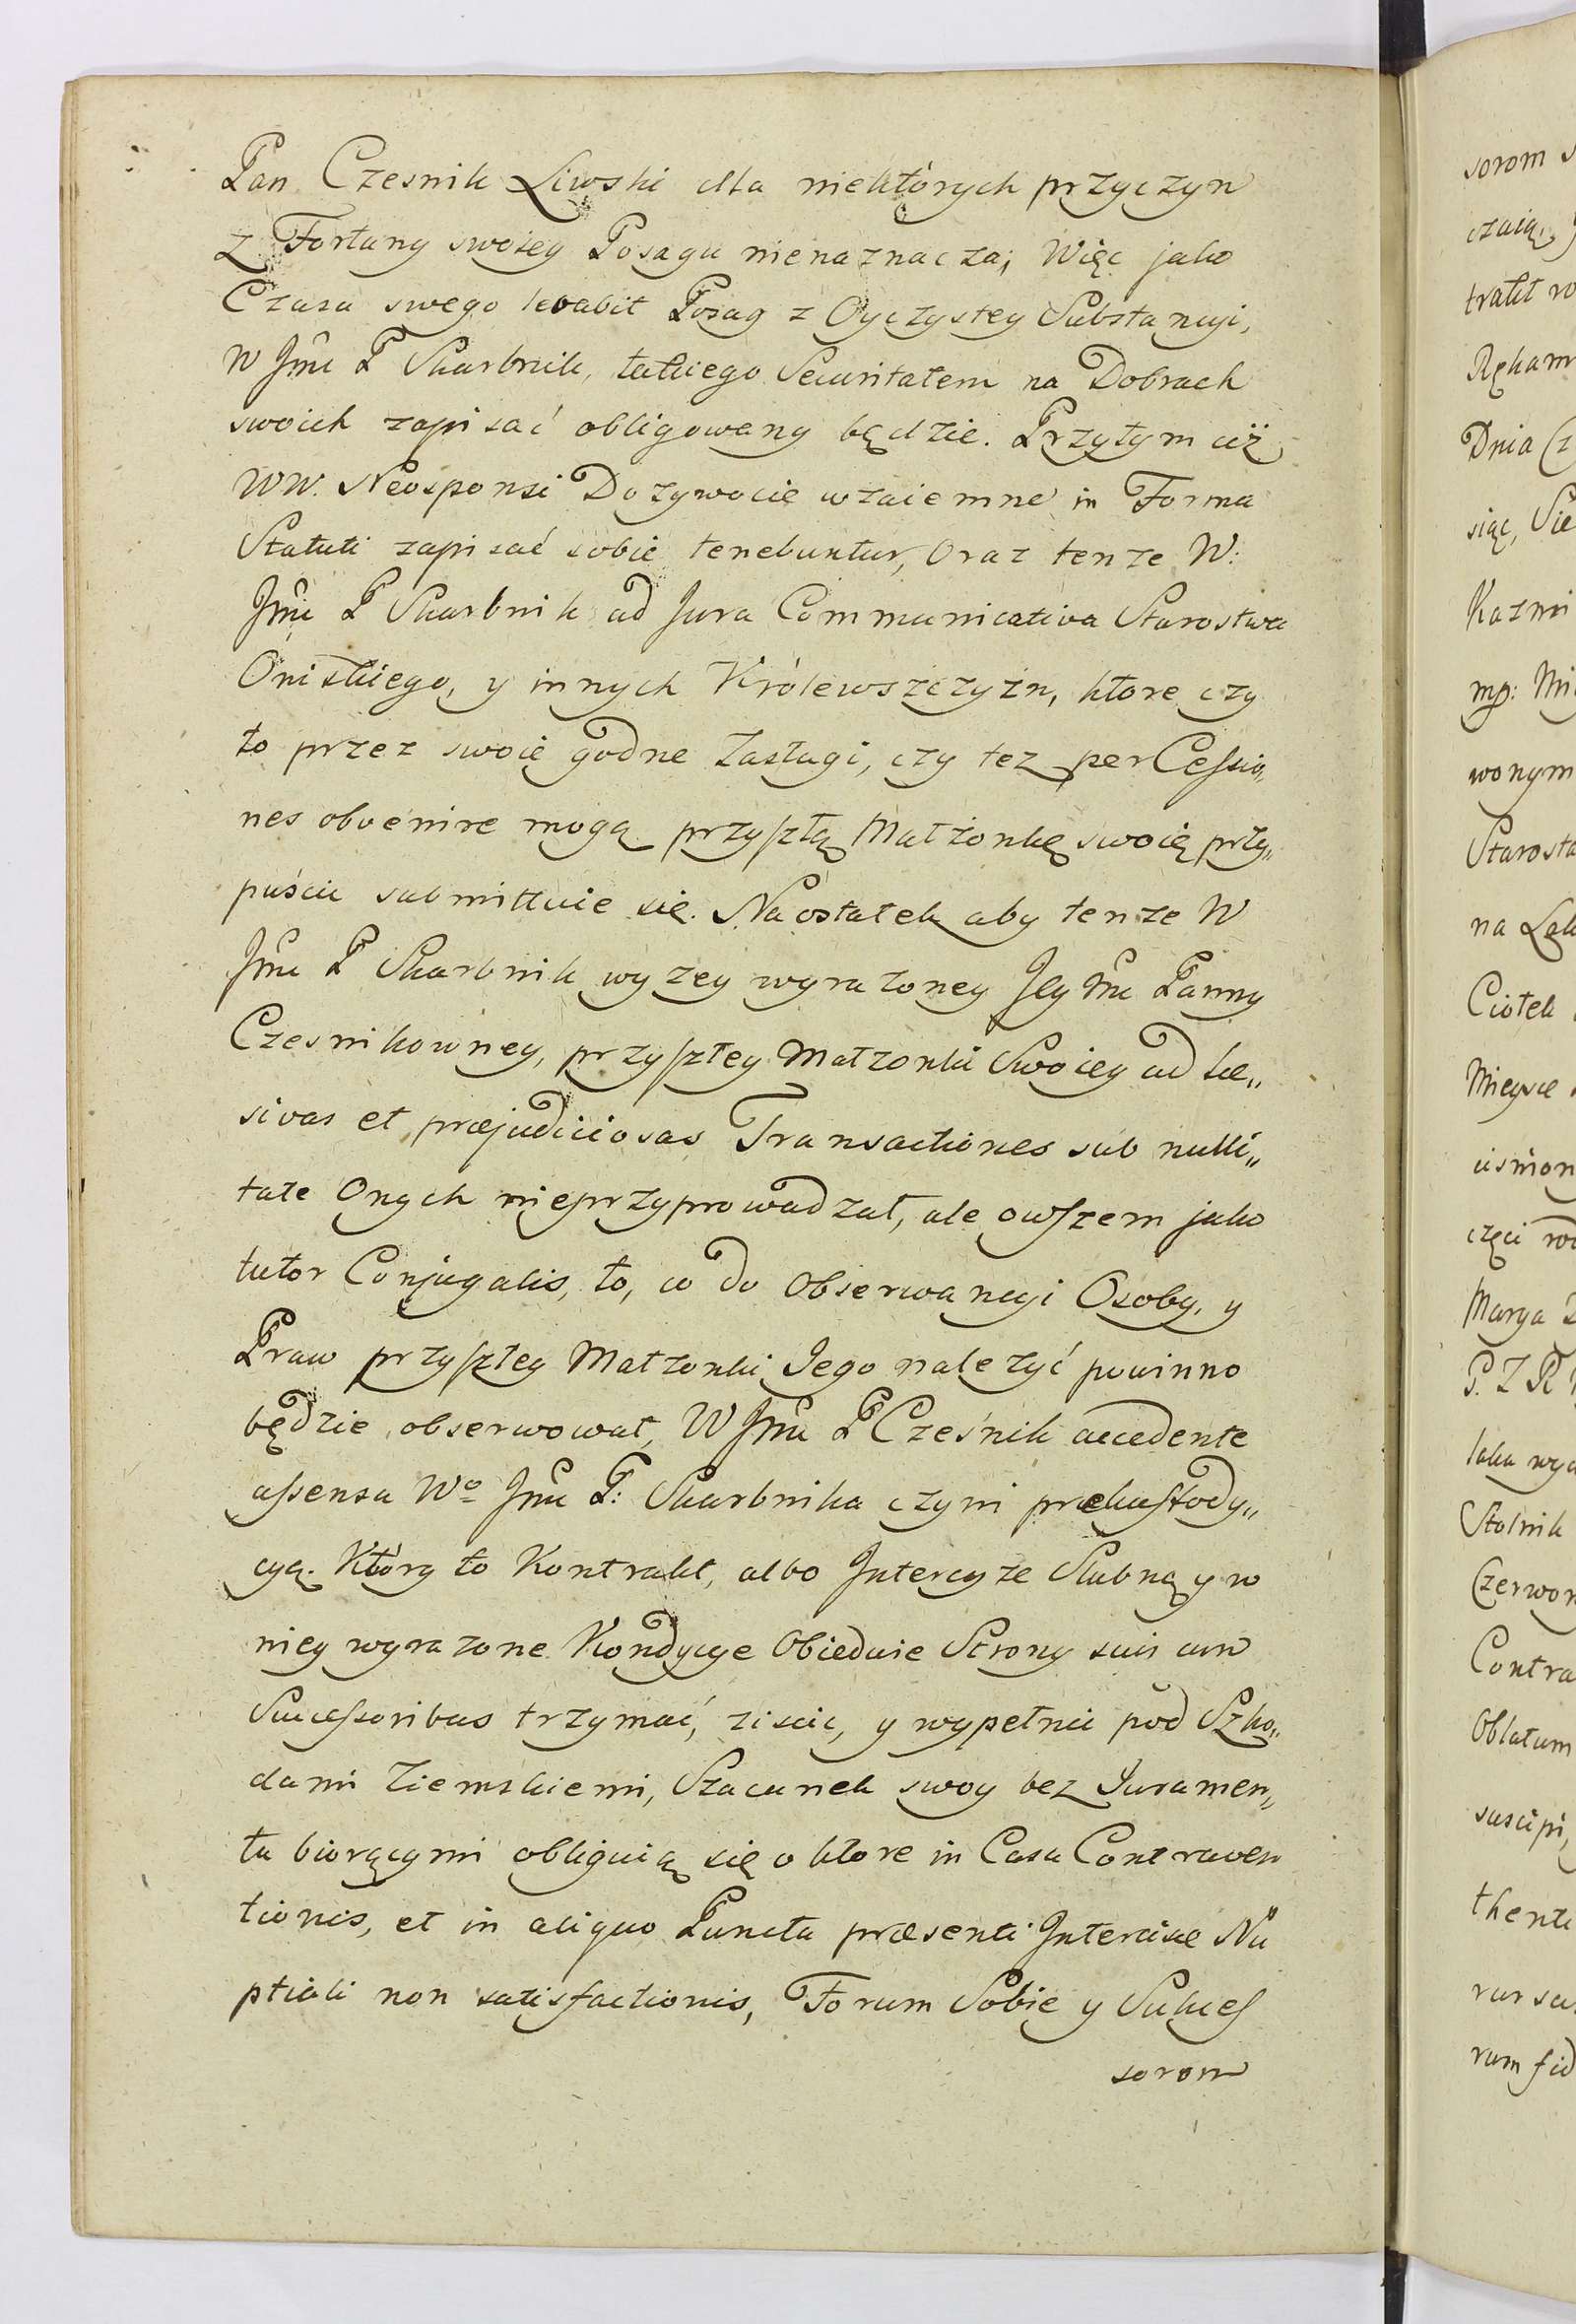 Pan Czesnik Liwski dla niektórych przyczyn
z Fortuny swoiey Posagu nienaznacza; Więc jako
Czasu swego levabit Posag z Oyczystey Substancyi,
W Jmć P Skarbnik, takiego Securitatem na Dobrach
swoich zapisać obligowany będzie. Przytym ciż
WW. Neosponsi Dozywocie wzaiemne in Forma
Statuti zapisać sobie tenebuntur, Oraz tenze W:
Jmć P Skarbnik ad Jura Communicativa Starostwa
Oniskiego, y innych Królewszczyzn, ktore czy
to przez swoię godne Zasługi, czy tez per Cessio„
nes obvenire mogą przyszłą Małżonkę swoię przy„
puscic submittuie się. Naostatek aby tenze W
Jmć P Skarbnik wyzey wyrazoney Jey Mć Panny
Czesnikowney, przyszłey Małzonki Swoiey ad læ„
sivas et præjudiciosas Transactiones sub nulli„
tate Onych nieprzyprowadzał, ale owszem jako
tutor Conjugalis, to, co do Obserwancyi Osoby, y
Praw przyszłey Małzonki Jego należyć powinno
będzie, obserwował, W Jmć P Cześnik accedente
assensu Wo Jmć P: Skarbnika czyni prekustody„
cyą. Który to Kontrakt, albo Intercyze Slubną y w
niey wyrazone Kondycye Obiedwie Strony suis cum
Successoribus trzymać, ziscic, y wypełnic pod Szko„
dami Ziemskiemi, Szacunek swoy bez Juramen„
tu biorącymi obliguią się o ktore in Casu Contraven
tionis, et in aliquo Puncto præsenti Intercisæ Nu
ptiali non satisfactionis, Forum Sobie y Sukces
sorom
sorom
czaią,
trakt
Rękam
Dnia
siąc, Sie
Kazmi
mp: Mi
wonym
Starosta
na
Ciołek
Mieysce
cismon
części
Marya
P. Z R
Stolnik
Czerwon
Contra
Oblatum
suscipi,
thenti
rursu
rum fid